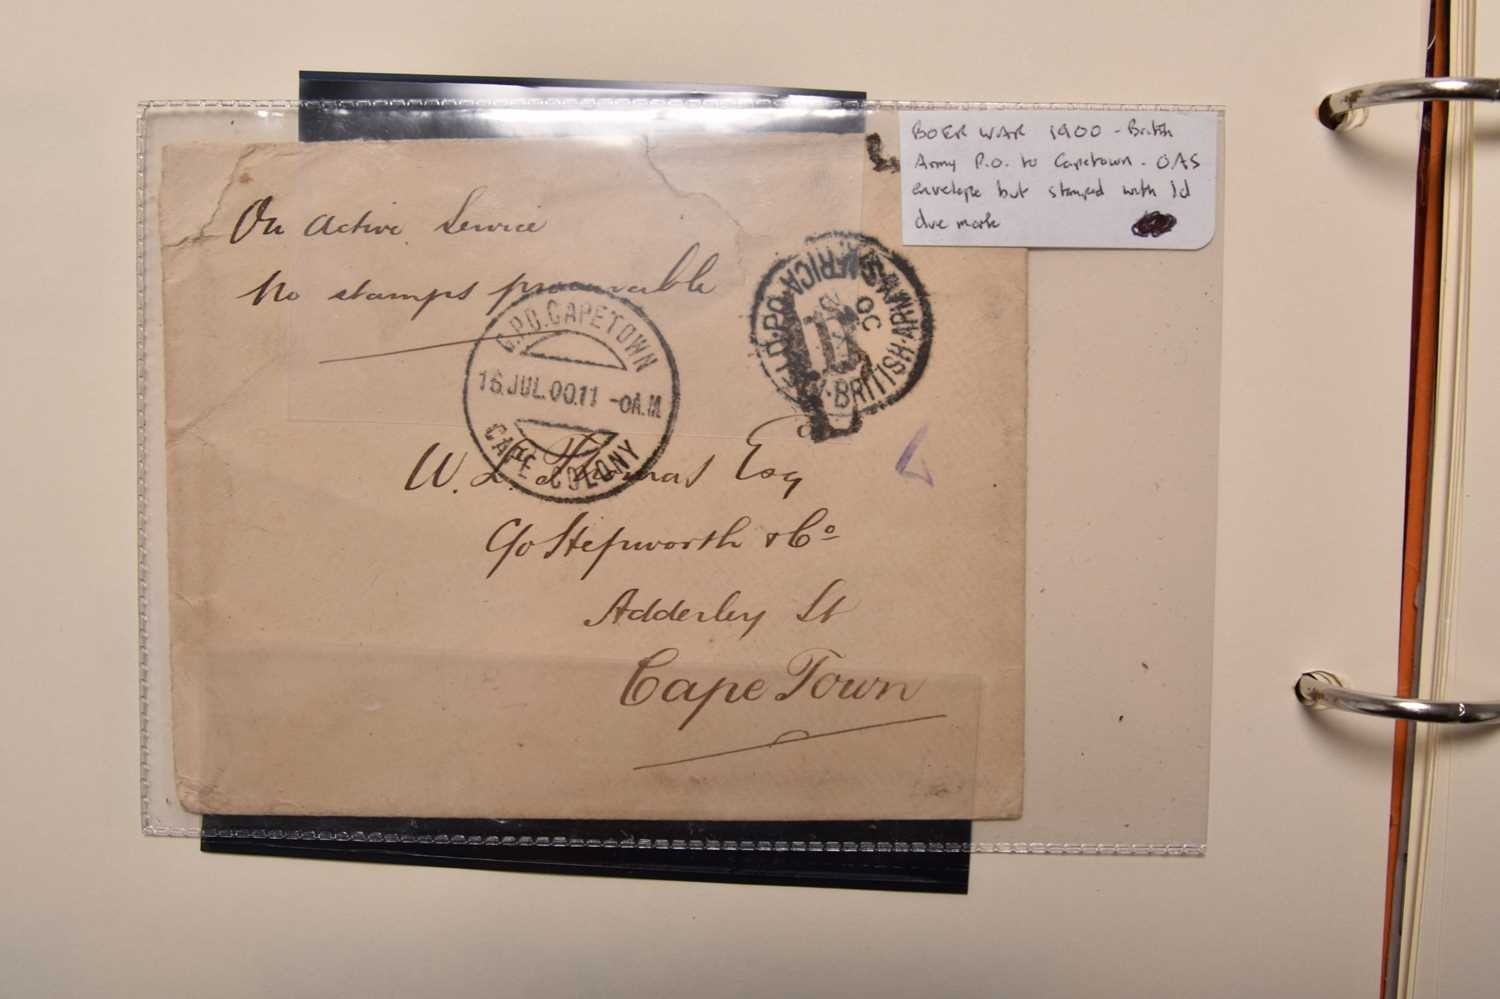 BOER WAR 1900 - British
Army P.O. to Capetown - OAS
envelope but stamped with 1d
due mark
On Active Service
No stamps procurable
G.P.O. CAPETOWN
16 JUL.00.11 -0A.M
CAPE COLONY
BRITISH·ARMY S.AFRICA
00
W. L. Thomas Esq
C/o Hepworth & Co
Adderley St
Cape Town